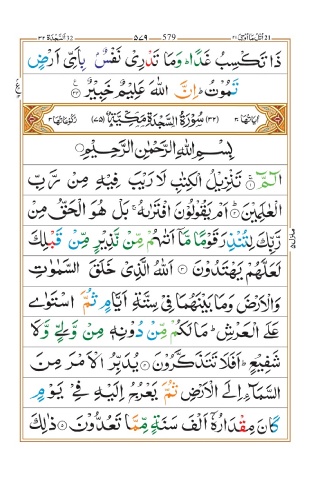 السجدة ٣٢ ٥٧٩ 579 اتل ما اوحی ٢١
ذَا تَكْسِبُ غَدًا ؕ وَمَا تَدْرِیْ نَفْسٌۢ بِاَیِّ اَرْضٍ
تَمُوْتُ ؕ اِنَّ اللّٰهَ عَلِیْمٌ خَبِیْرٌ ۟
اٰیاتها ٣٠ (٣٢) سُوْرَةُ السَّجْدَةِ مَكِّیَّةٌ (٧٥) رکوعاتها ٣
بِسْمِ اللّٰهِ الرَّحْمٰنِ الرَّحِیْمِ
الٓمّٓ ۟ تَنْزِیْلُ الْكِتٰبِ لَا رَیْبَ فِیْهِ مِنْ رَّبِّ
الْعٰلَمِیْنَ ۟ اَمْ یَقُوْلُوْنَ افْتَرٰىهُ ۚ بَلْ هُوَ الْحَقُّ مِنْ
رَّبِّكَ لِتُنْذِرَ قَوْمًا مَّاۤ اَتٰىهُمْ مِّنْ نَّذِیْرٍ مِّنْ قَبْلِكَ
لَعَلَّهُمْ یَهْتَدُوْنَ ۟ اَللّٰهُ الَّذِیْ خَلَقَ السَّمٰوٰتِ
وَالْاَرْضَ وَمَا بَیْنَهُمَا فِیْ سِتَّةِ اَیَّامٍ ثُمَّ اسْتَوٰی
عَلَی الْعَرْشِ ؕ مَا لَكُمْ مِّنْ دُوْنِهٖ مِنْ وَّلِیٍّ وَّلَا
شَفِیْعٍ ؕ اَفَلَا تَتَذَكَّرُوْنَ ۟ یُدَبِّرُ الْاَمْرَ مِنَ
السَّمَآءِ اِلَی الْاَرْضِ ثُمَّ یَعْرُجُ اِلَیْهِ فِیْ یَوْمٍ
كَانَ مِقْدَارُهٗۤ اَلْفَ سَنَةٍ مِّمَّا تَعُدُّوْنَ ۟ ذٰلِكَ